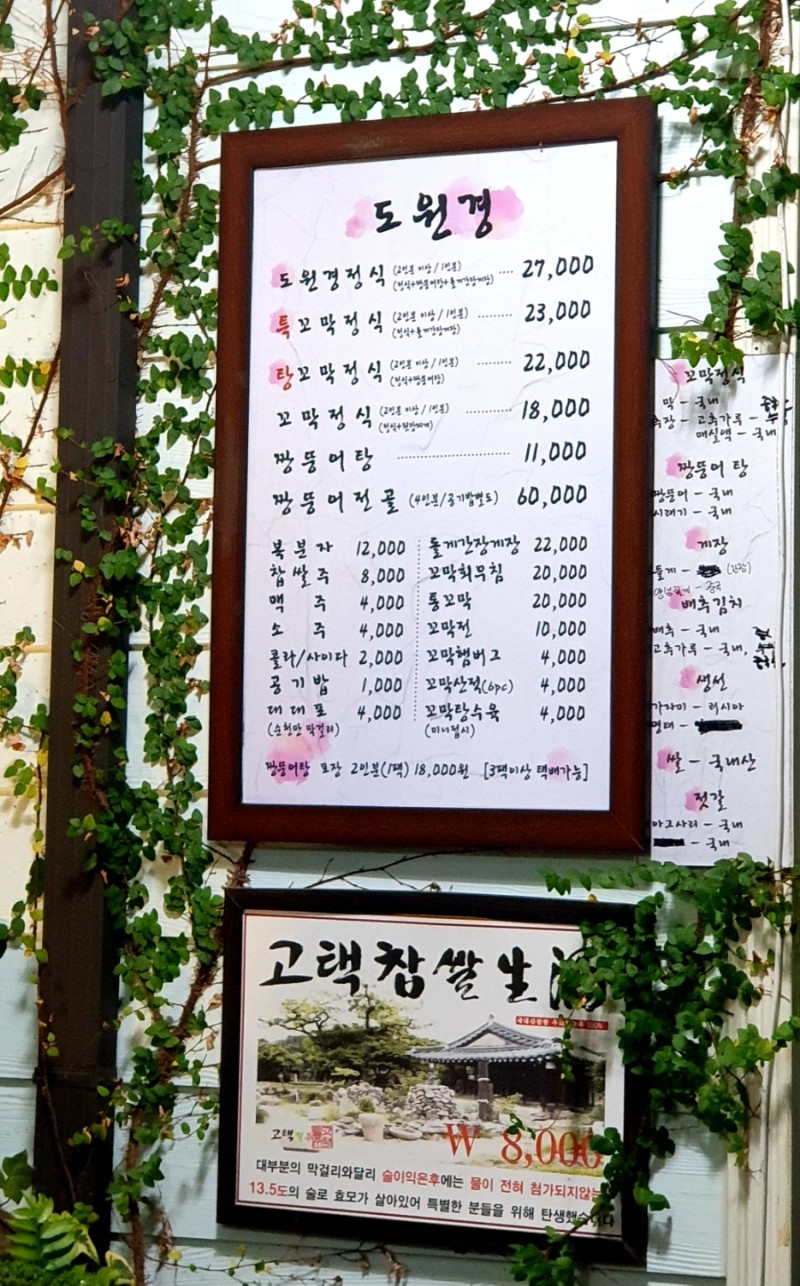 도원경
도원경정식 (2인분 이상 / 1인분) 27,000
(정식+짱뚱어탕+돌게간장게장)
특꼬막정식 (2인분 이상 / 1인분) 23,000
(정식+돌게간장게장)
탕꼬막정식 (2인분 이상 / 1인분) 22,000
(정식+짱뚱어탕)
꼬막정식 (2인분 이상 / 1인분) 18,000
(정식+된장찌개)
짱뚱어탕 11,000
짱뚱어전골 (4인분/공기밥별도) 60,000
복분자 12,000
찹쌀주 8,000
맥주 4,000
소주 4,000
콜라/사이다 2,000
공기밥 1,000
대대포 4,000
(순천만 막걸리)
돌게간장게장 22,000
꼬막회무침 20,000
통꼬막 20,000
꼬막전 10,000
꼬막햄버그 4,000
꼬막산적(6pc) 4,000
꼬막탕수육 4,000
(미니접시)
짱뚱어탕 포장 2인분(1팩) 18,000원 [3팩이상 택배가능]
꼬막정식
막 - 국내
추장 - 고추가루 -
매실액 - 국내
짱뚱어탕
짱뚱어 - 국내
시래기 - 국내
게장
돌게 - (간장)
배추김치
배추 - 국내
고추가루 - 국내,
생선
가자미 - 러시아
명태 -
쌀 - 국내산
젓갈
마고사리 - 국내
- 국내
고택찹쌀生酒
고택
₩ 8,000
대부분의 막걸리와달리 술이익은후에는 물이 전혀 첨가되지않는
13.5도의 술로 효모가 살아있어 특별한 분들을 위해 탄생했습니다